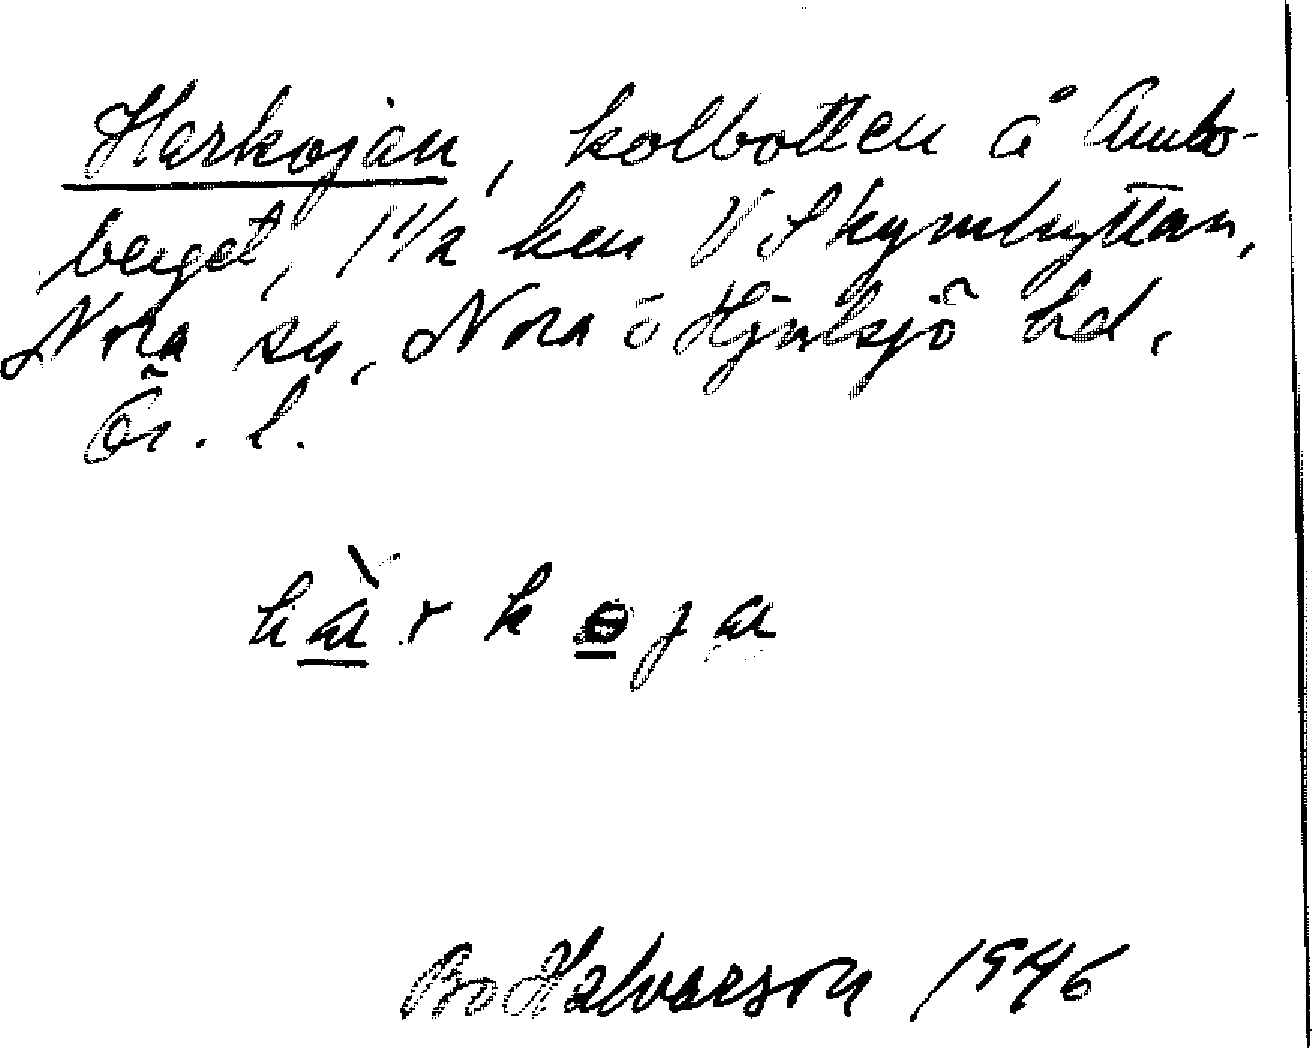 Harkojan, kolbotten å Ambo-
berget, 1 1/2 km V Skymhyttan,
Nora sn, Nora o Hjulsjö hd,
Ör. l.
hàrkoja
Bo Halvarson 1946